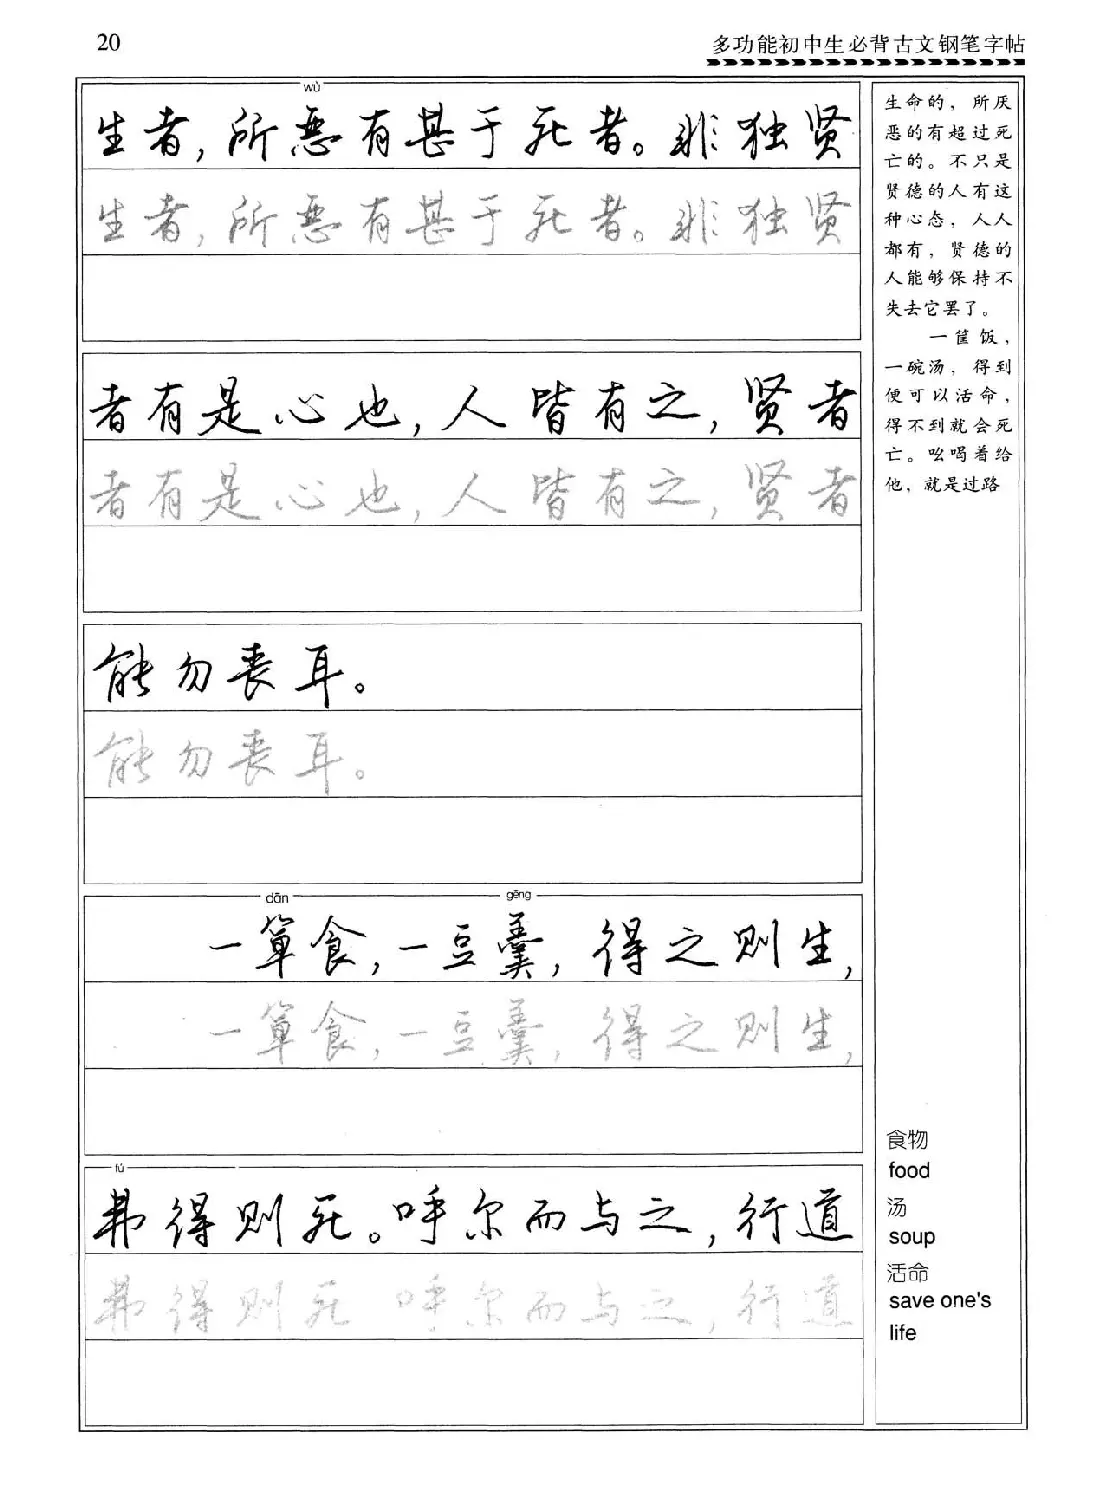 20
多功能初中生必背古文钢笔字帖
wù
生者，所恶有甚于死者。非独贤
生者，所恶有甚于死者。非独贤
者有是心也，人皆有之，贤者
者有是心也，人皆有之，贤者
能勿丧耳。
能勿丧耳。
dān gēng
一箪食，一豆羹，得之则生，
一箪食，一豆羹，得之则生，
fú
弗得则死。呼尔而与之，行道
弗得则死 呼尔而与之，行道
生命的，所厌
恶的有超过死
亡的。不只是
贤德的人有这
种心态，人人
都有，贤德的
人能够保持不
失去它罢了。
一筐饭，
一碗汤，得到
便可以活命，
得不到就会死
亡。吆喝着给
他，就是过路
食物
food
汤
soup
活命
save one's
life